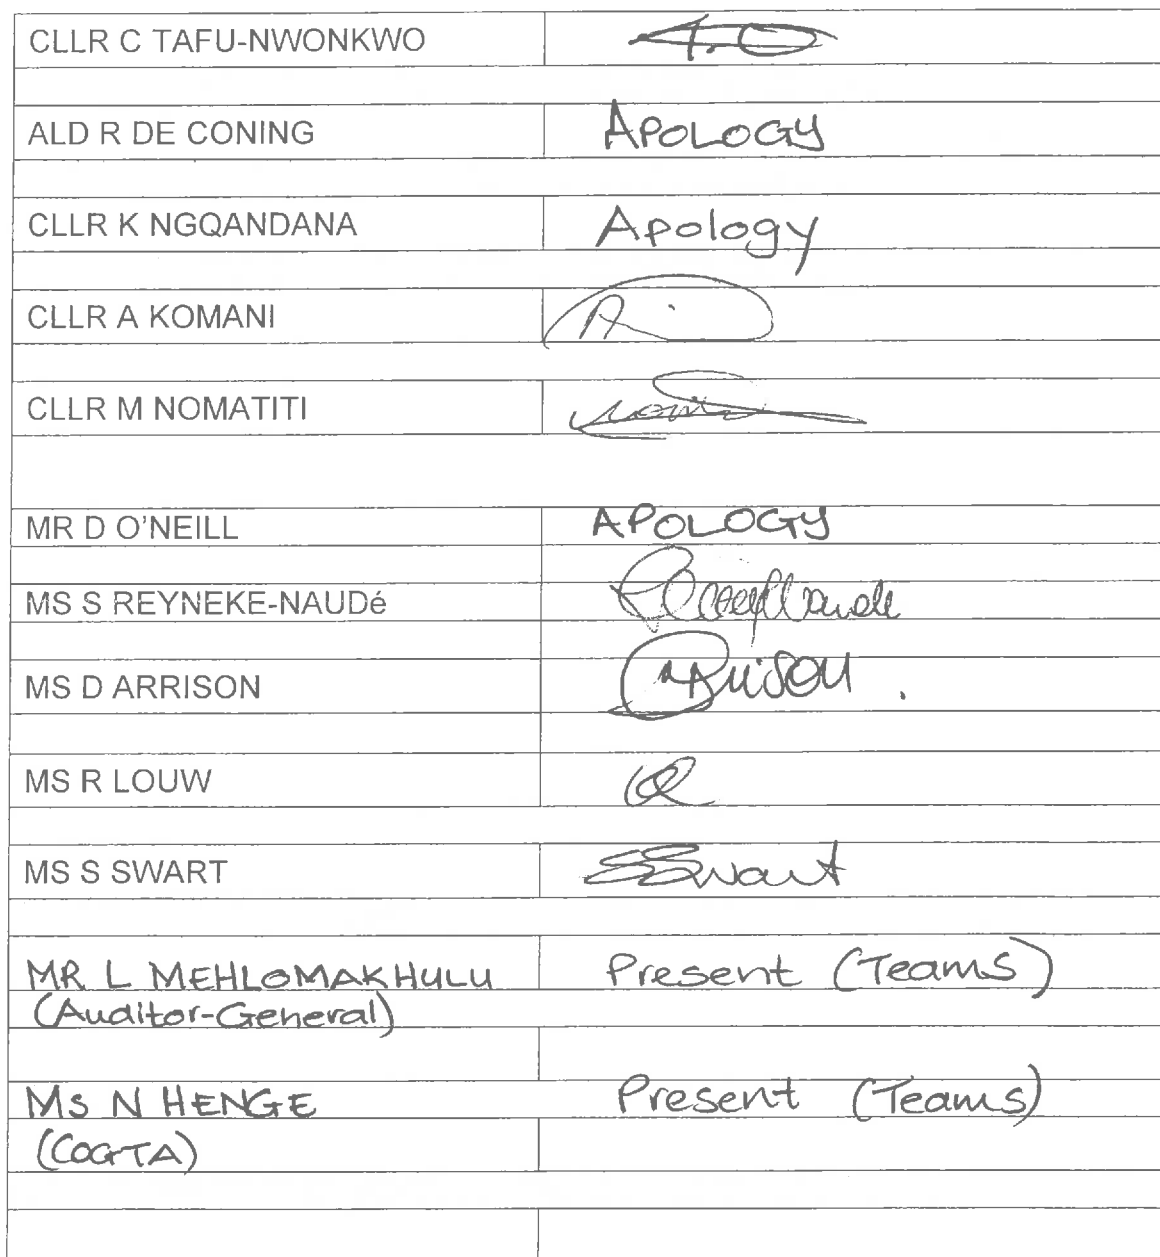 CLLR C TAFU-NWONKWO
ALD R DE CONING APOLOGY
CLLR K NGQANDANA Apology
CLLR A KOMANI
CLLR M NOMATITI
MR D O'NEILL APOLOGY
MS S REYNEKE-NAUDé
MS D ARRISON
MS R LOUW
MS S SWART SSwart
MR L MEHLOMAKHULU Present (Teams)
(Auditor-General)
Ms N HENGE Present (Teams)
(COGTA)